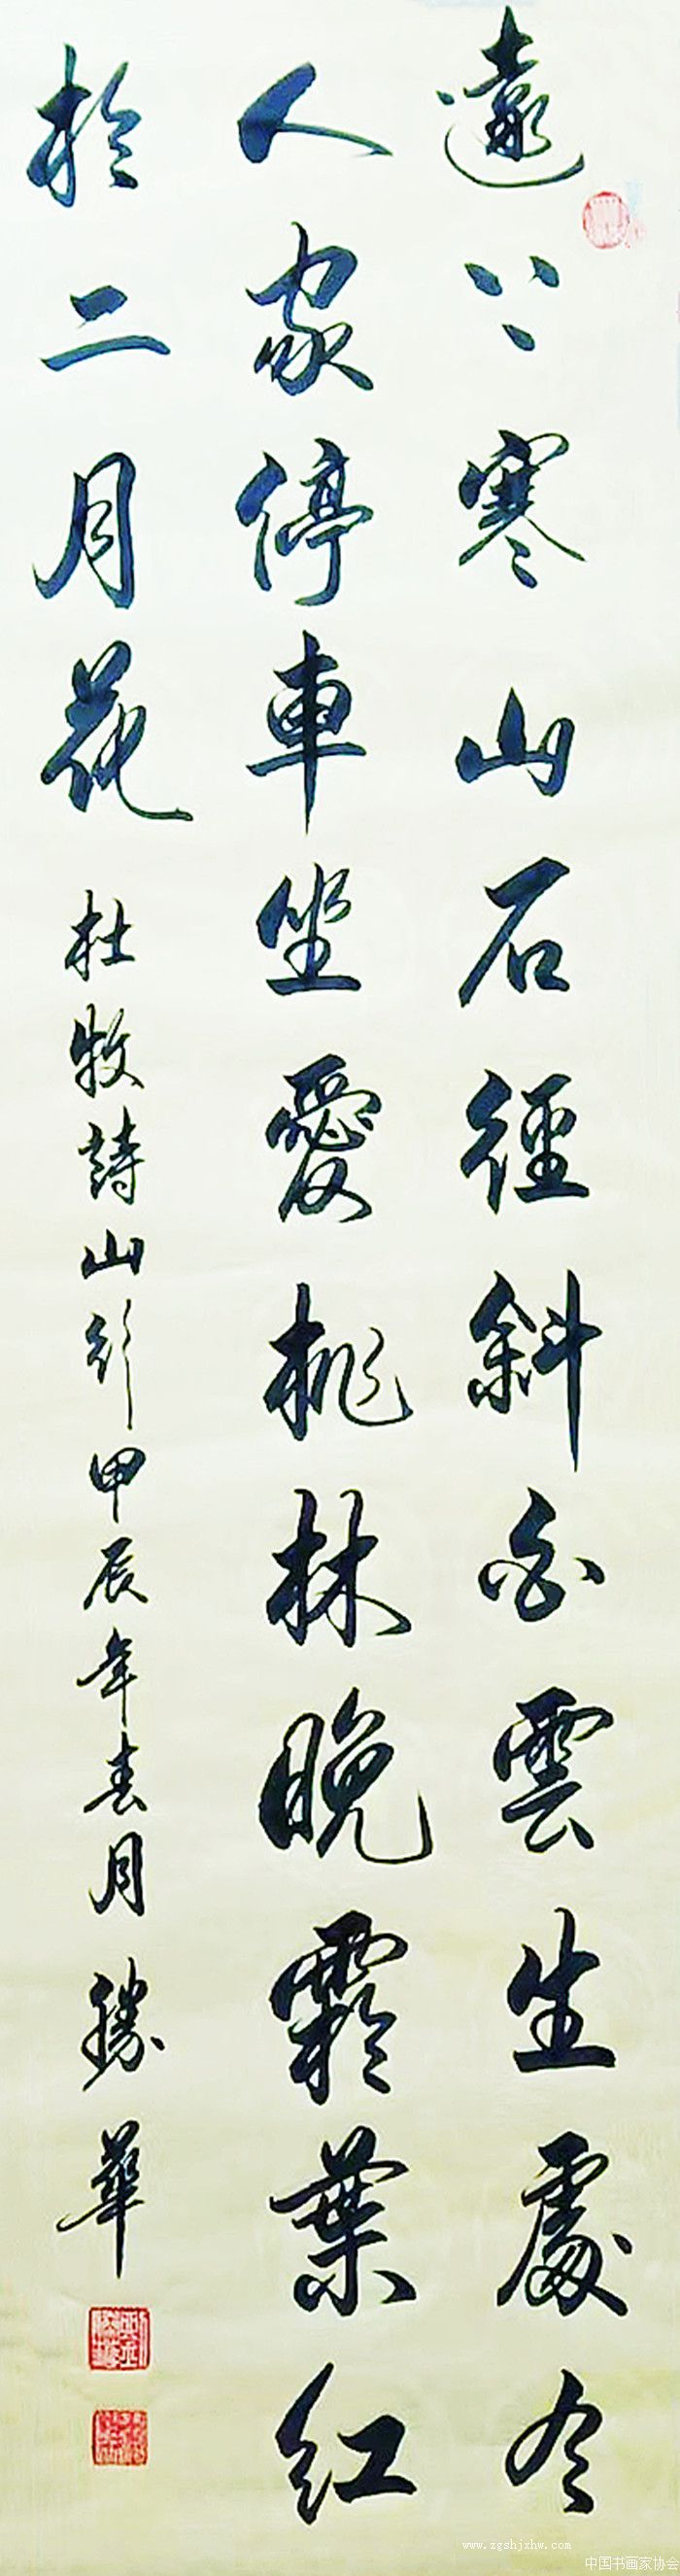 遠上寒山石徑斜白雲生處今
人家停車坐愛桃林晚霜葉紅
於二月花 杜牧詩山行甲辰年春月 勝華
www.zgshjxhw.com
中国书画家协会